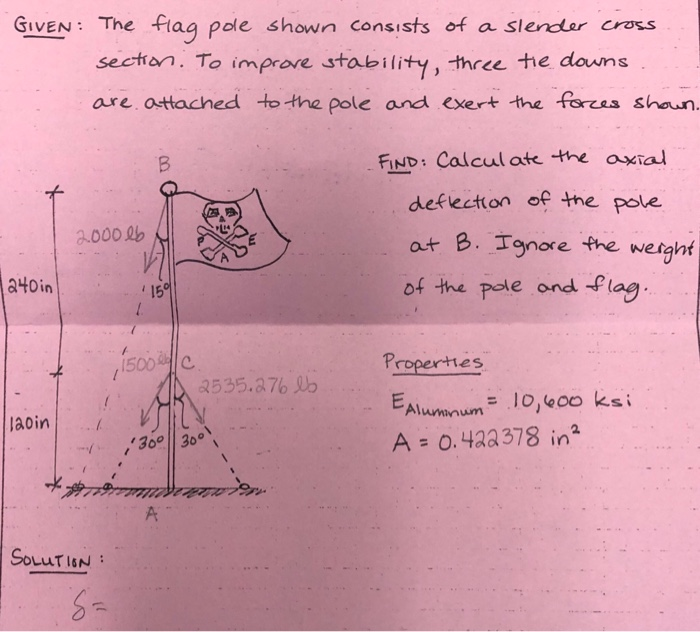 GIVEN: The flag pole shown consists of a slender cross
section. To improve stability, three tie downs
are attached to the pole and exert the forces shown.
FIND: Calculate the axial
deflection of the pole
at B. Ignore the weight
of the pole and flag.
B
2000 lb
P E
A
240in
15°
1500 lb
C
2535.276 lb
120in
30° 30°
A
Properties
E Aluminum = 10,600 ksi
A = 0.422378 in²
SOLUTION:
δ=